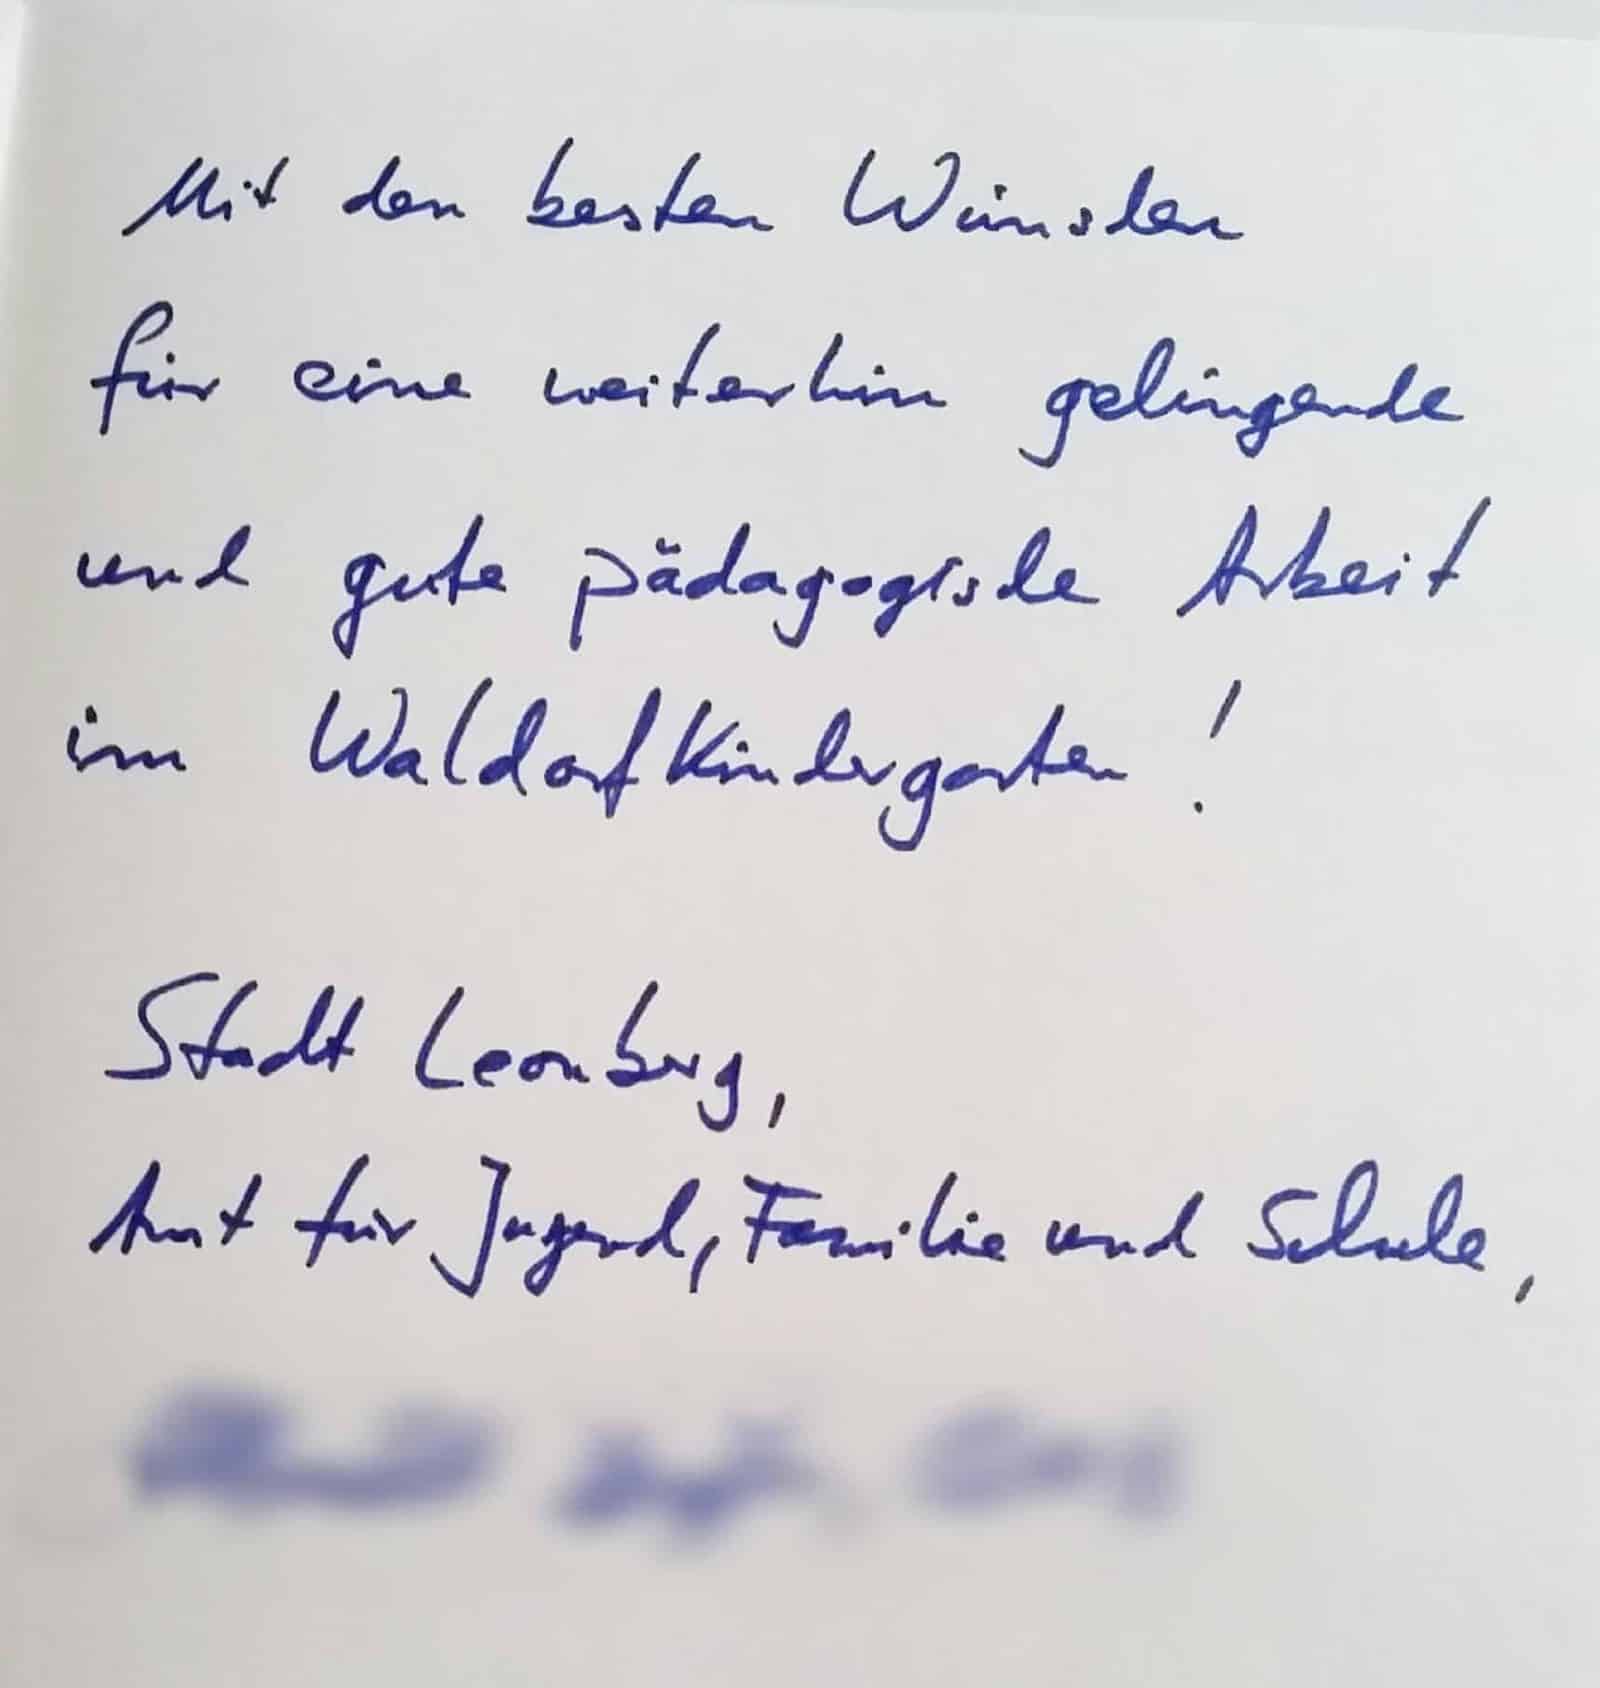 Mit den besten Wünschen
für eine weiterhin gelingende
und gute pädagogische Arbeit
im Waldorfkindergarten!
Stadt Leonberg,
Amt für Jugend, Familie und Schule,